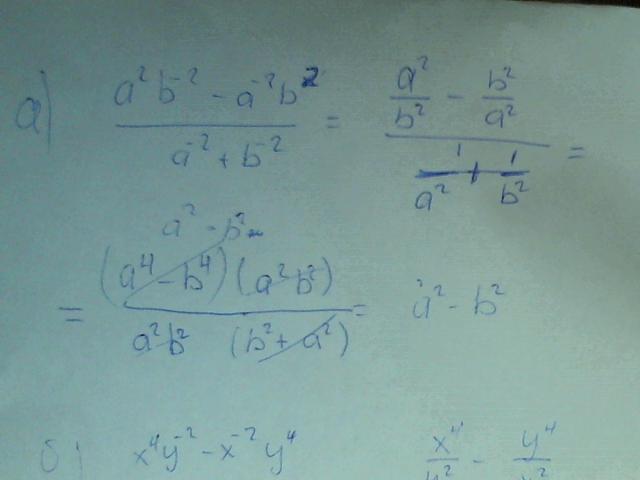 а) (a²b⁻² - a⁻²b²)/(a⁻² + b⁻²) = (a²/b² - b²/a²)/(1/a² + 1/b²) =
a² - b²
= ((a⁴ - b⁴)(a²b²))/(a²b² (b² + a²)) = a² - b²
б) x⁴y⁻² - x⁻²y⁴ x⁴/y² - y⁴/x²